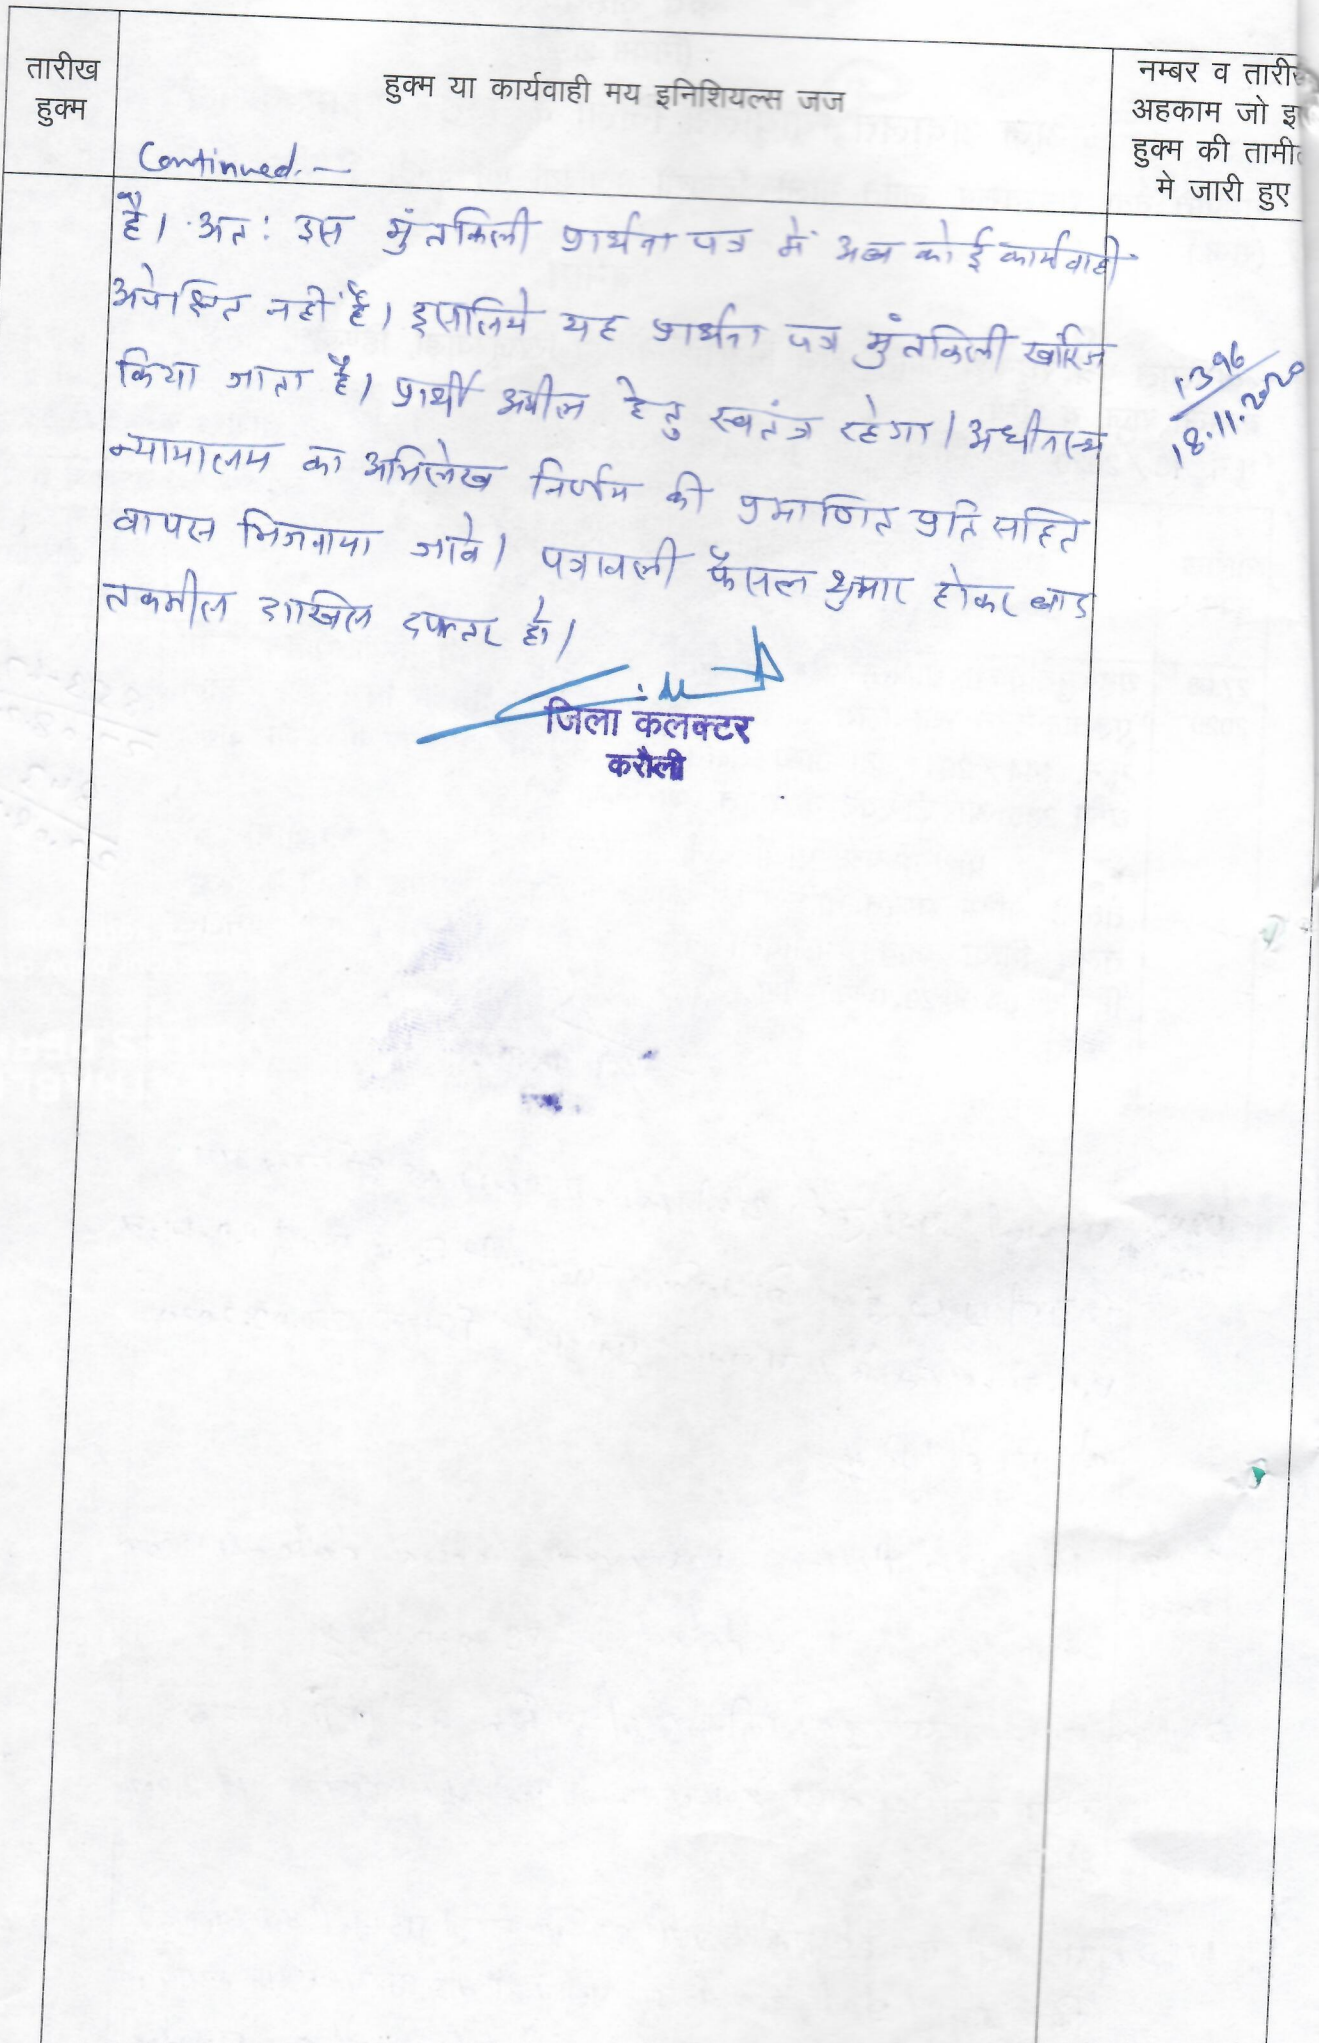 तारीख
हुक्म
हुक्म या कार्यवाही मय इनिशियल्स जज
नम्बर व तारीख
अहकाम जो इ
हुक्म की तामी
मे जारी हुए
Continued. —
है। अतः इस मुंतकिली प्रार्थना पत्र में अब कोई कार्यवाही
अपेक्षित नहीं है। इसलिये यह प्रार्थना पत्र मुंतकिली खारिज
किया जाता है। प्रार्थी अपील हेतु स्वतंत्र रहेगा। अधीनस्थ
न्यायालय का अभिलेख निर्णय की प्रमाणित प्रति सहित
वापस भिजवाया जावे। पत्रावली फैसल शुमार होकर बाद
तकमील दाखिल दफ्तर हो।
1396
18.11.2020
जिला कलक्टर
करौली